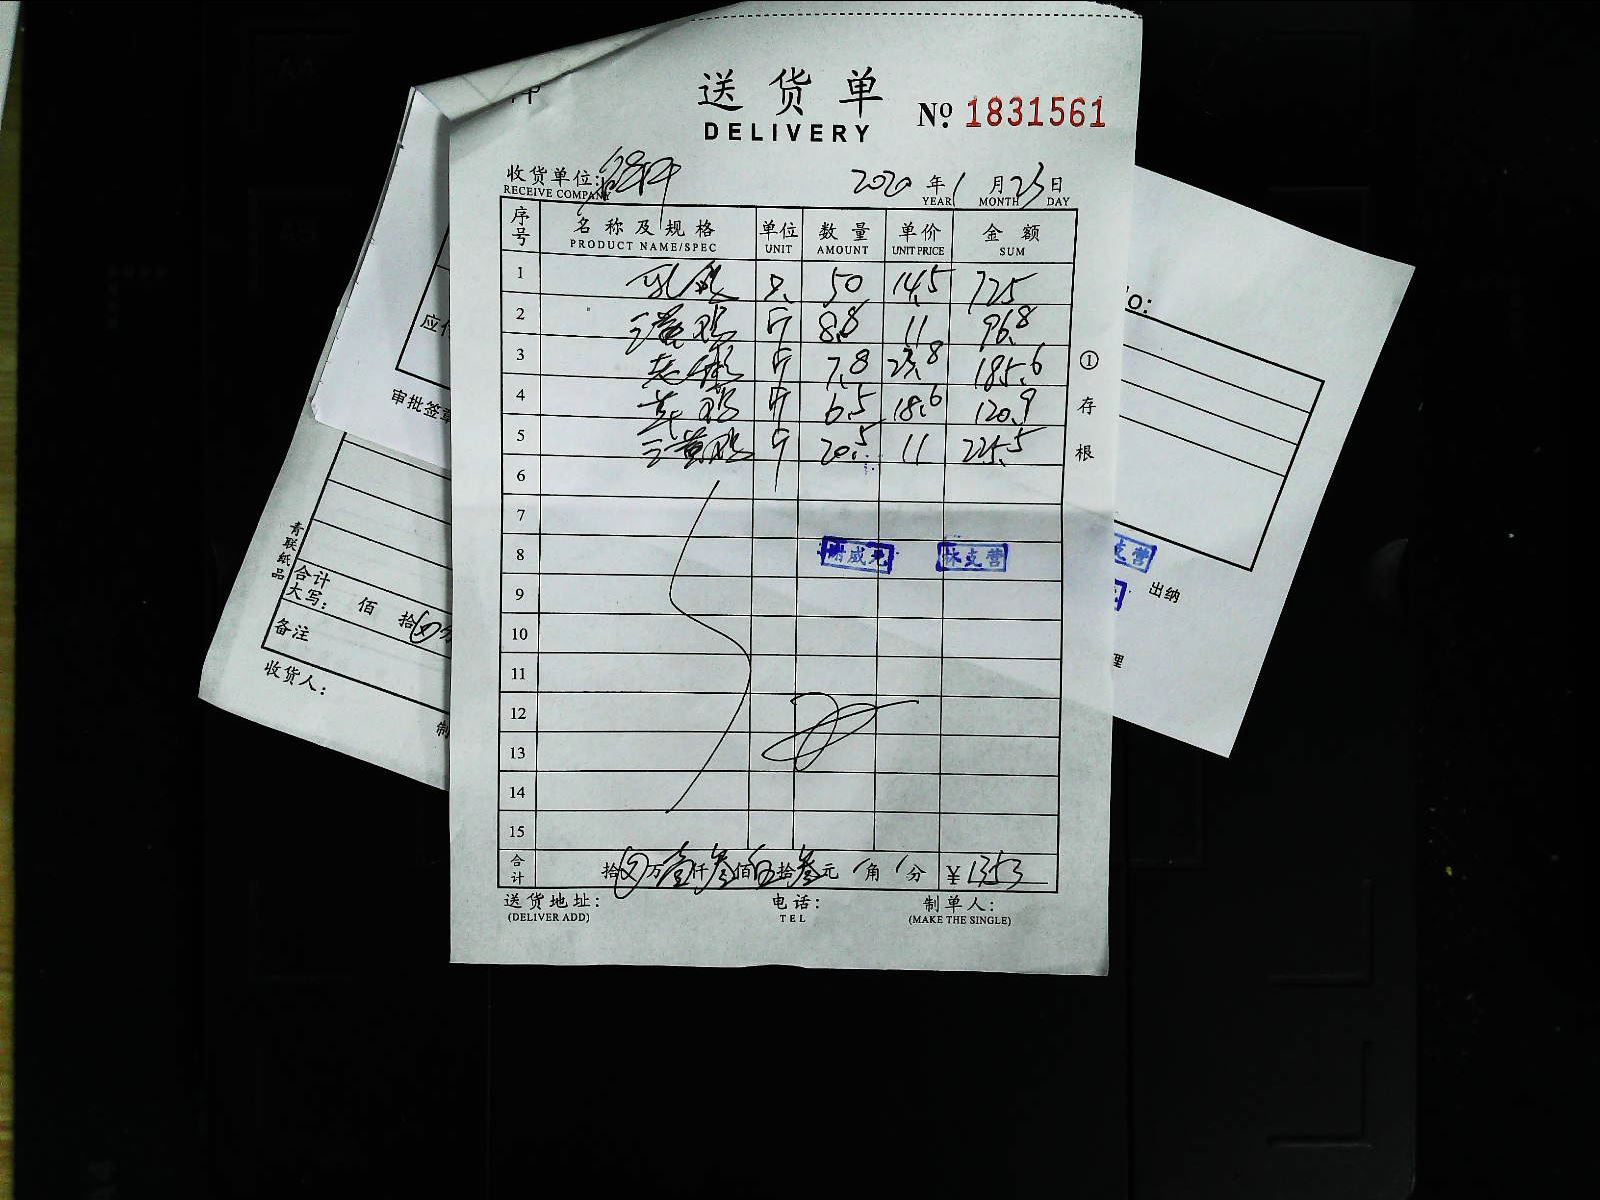 送货单
DELIVERY
№ 1831561
收货单位:
RECEIVE COMPANY
2020 年 1 月 23 日
YEAR MONTH DAY
序号 名称及规格 单位 数量 单价 金额
PRODUCT NAME/SPEC UNIT AMOUNT UNIT PRICE SUM
1 乳鸽 只 50 14.5 725
2 三黄鸡 斤 8.8 11 96.8
3 老 斤 7.8 23.8 185.6
4 鸡 斤 6.5 18.6 120.9
5 三黄鸡 斤 20.5 11 225.5
6
7
8
9
10
11
12
13
14
15
合计 拾 万壹仟叁佰伍拾叁元 / 角 / 分 ¥1353
送货地址: 电话: 制单人:
(DELIVER ADD) TEL (MAKE THE SINGLE)
①存根
威元
林支营
应付
审批签章
青联纸品
合计
大写: 佰 拾
备注
收货人:
制
o:
支营
出纳
理